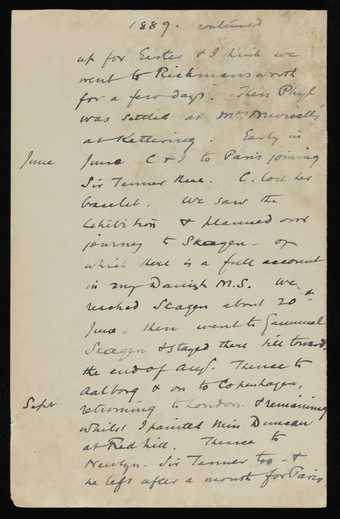 1889. continued
up for Easter & I think we
went to Rickmansworth
for a few days. Then Phyl
was settled at Mrs
at Kettering. Early in
June June C & I to Paris joining
Sir Tenner Rue. C. lost her
bracelet. We saw the
Exhibition & planned our
journey to Skagen - of
which there is a full account
in my Danish M.S. We
reached Skagen about 20th
June. then went to Gammel
Skagen & stayed there till towards
the end of Aug. Thence to
Aalborg & on to Copenhagen,
Sept returning to London. & remaining
whilst I painted Miss Duncan
at Red hill. Thence to
Newlyn. Sir Tenner too - &
he left after a month for Paris